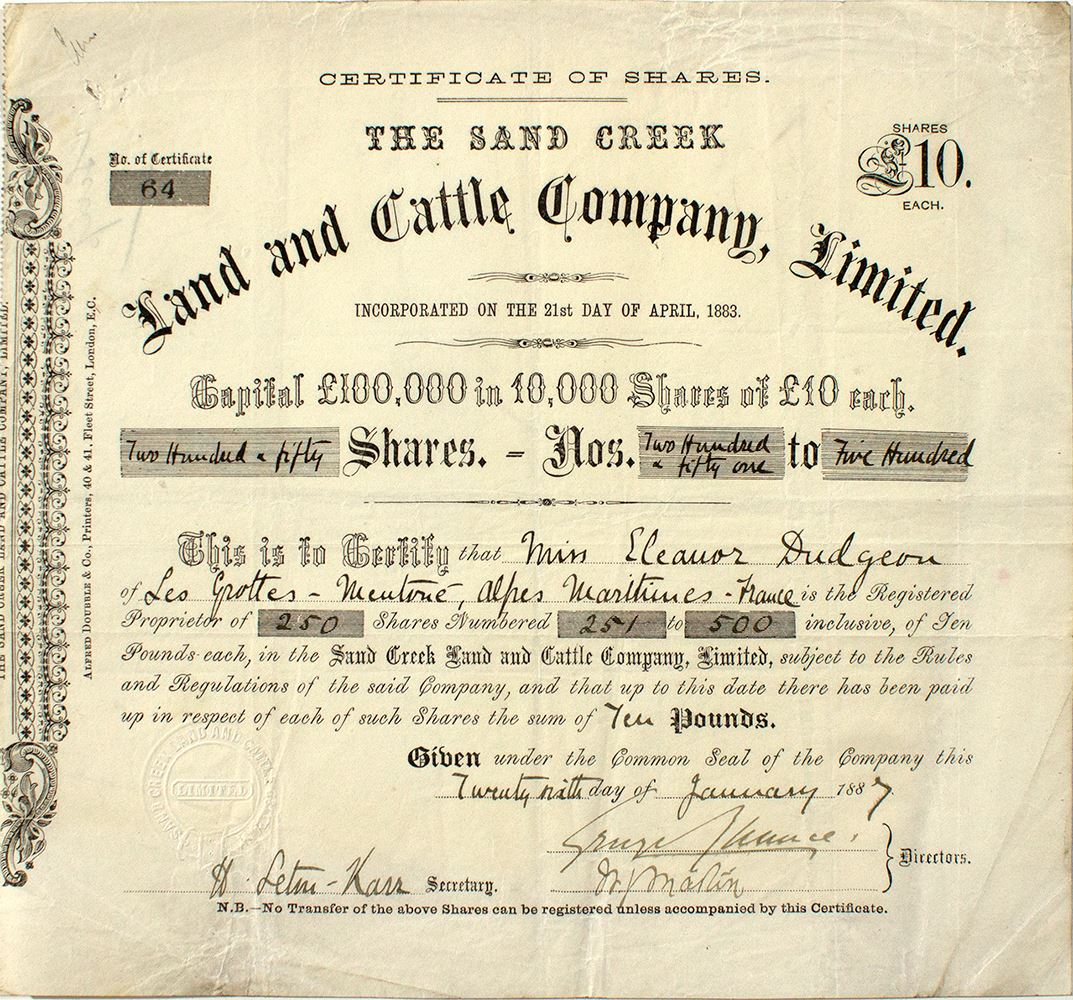 CERTIFICATE OF SHARES.
THE SAND CREEK
Land and Cattle Company, Limited.
No. of Certificate
64
SHARES
£10.
EACH.
INCORPORATED ON THE 21st DAY OF APRIL, 1883.
Capital £100,000 in 10,000 Shares of £10 each.
Two Hundred & fifty Shares. – Nos. Two Hundred & fifty one to Five Hundred
This is to Certify that Miss Eleanor Dudgeon
of Les Grottes - Mentone, Alpes Maritimes - France is the Registered
Proprietor of 250 Shares Numbered 251 to 500 inclusive, of Ten
Pounds each, in the Sand Creek Land and Cattle Company, Limited, subject to the Rules
and Regulations of the said Company, and that up to this date there has been paid
up in respect of each of such Shares the sum of Ten Pounds.
Given under the Common Seal of the Company this
Twenty sixth day of January 1887
George
W J Martin
Directors.
H Leton-Karr Secretary.
N.B.—No Transfer of the above Shares can be registered unless accompanied by this Certificate.
SAND CREEK LAND AND CATTLE COMPANY
LIMITED
ALFRED DOUBLE & Co., Printers, 40 & 41, Fleet Street, London, E.C.
THE SAND CREEK LAND AND CATTLE COMPANY, LIMITED.